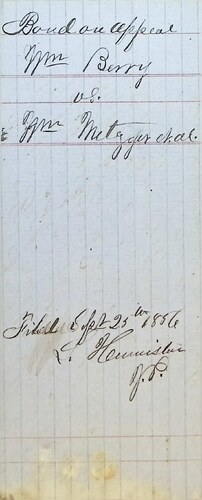 Bond on Appeal
Wm Berry
vs.
Wm Metzger et. al.
Filed Sept 25th 1856
L.
J.P.